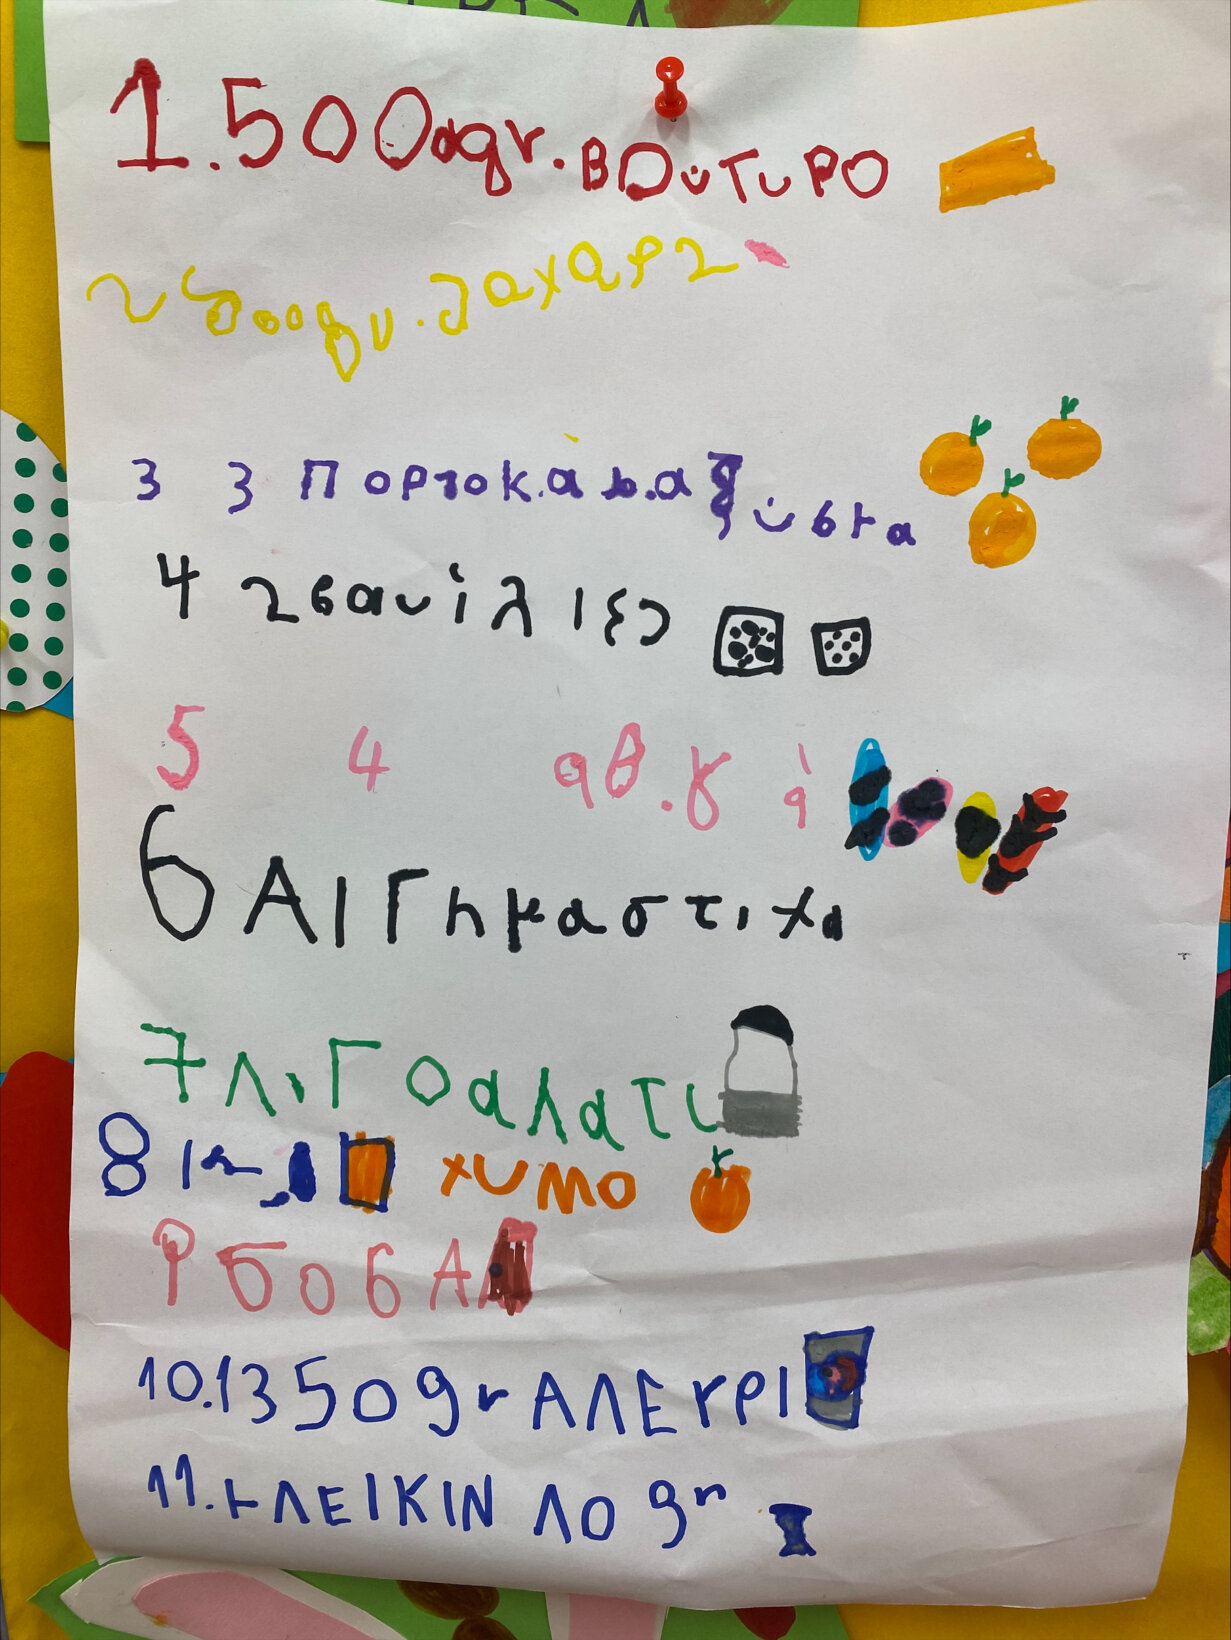 1.500gr. ΒΟύΤυΡΟ
2 500gr. ζαχαρ
3 3 Πορτοκάλ.α ξύστα
4 2 βανίλιες
5 4 αβ.γά
6 ΛΙΓη μαστιχα
7 ΛιΓο αλατι
8 χυΜο
9 σόδΑ
10.1350gr ΑΛΕΥΡΙ
11. gr